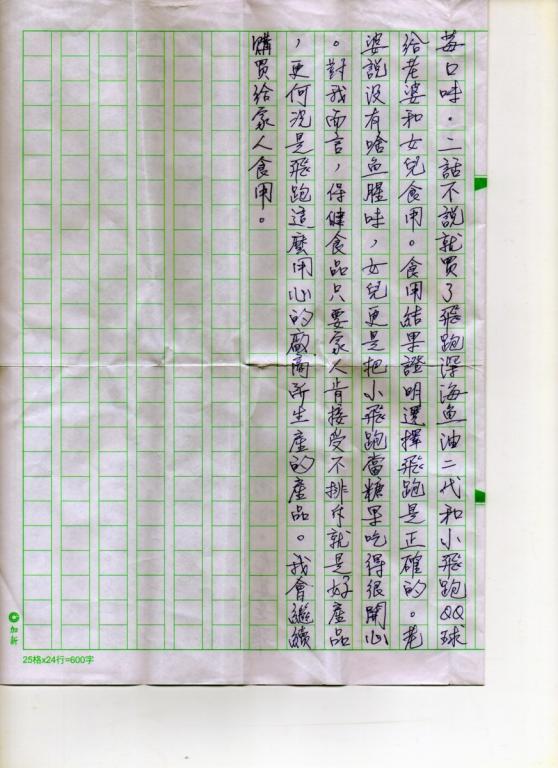 莓口味。二話不說就買了飛跑深海魚油二代和小飛跑QQ球
給老婆和女兒食用。食用結果證明選擇飛跑是正確的。老
婆說沒有啥魚腥味，女兒更是把小飛跑當糖果吃得很開心
。對我而言，保健食品只要家人肯接受不排斥就是好產品
，更何況是飛跑這麼用心的廠商所生產的產品。我會繼續
購買給家人食用。
加新
25格x24行=600字